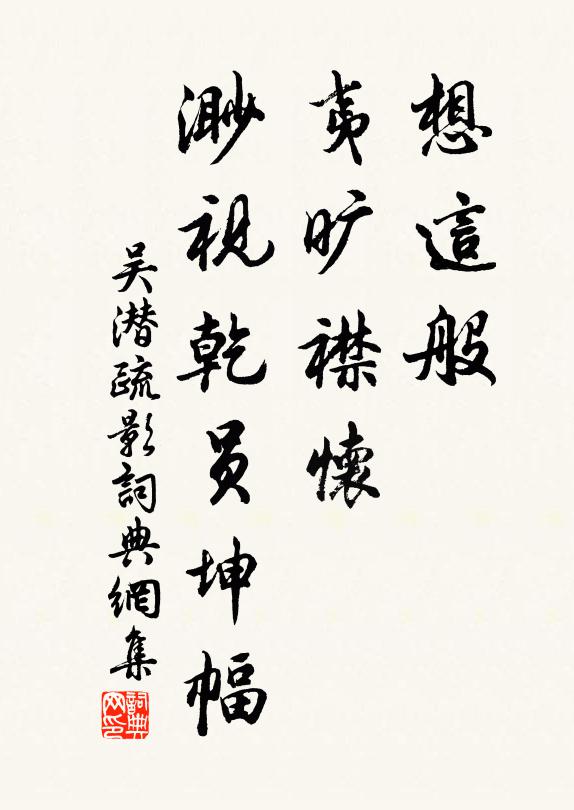 想這般
夷旷襟懷
渺視乾员坤幅
吴潜疏影詞典網集
詞典网印